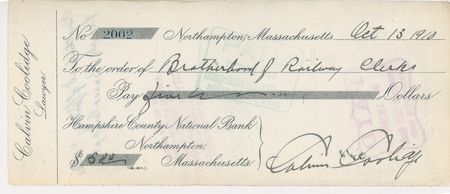 Calvin Coolidge
Lawyer
No 2002 Northampton, Massachusetts Oct 13 1910
To the order of Brotherhood of Railway Clerks
Pay five Dollars
Hampshire County National Bank
Northampton,
Massachusetts
$ 5.00
Calvin Coolidge